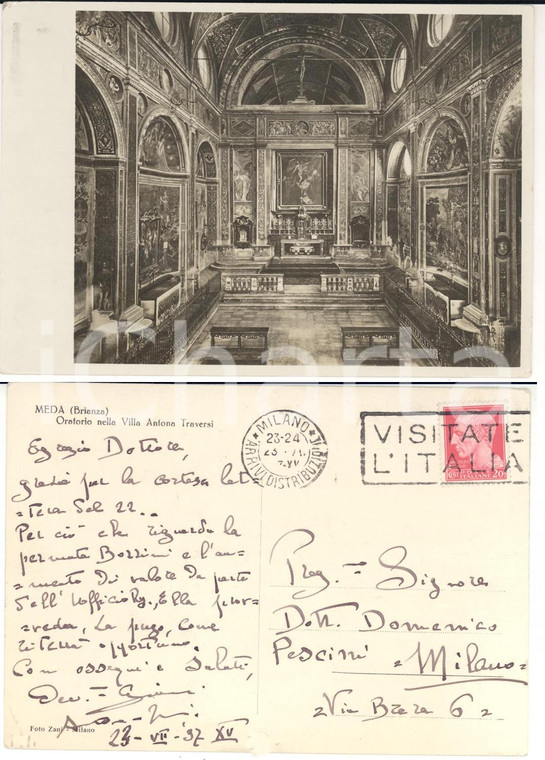 iCharta
MEDA (Brianza)
Oratorio nella Villa Antona Traversi
Egregio Dottore,
grazie per la cortesa let-
-tera del 22..
Per ciò che riguarda la
permuta Bozzini e l'au-
-mento di valore da parte
dell'Ufficio, Ella prov-
-veda, La prego, come
riterrà opportuno.
Con ossequi e saluti,
Dev.=
23-VII-37 XV
Foto Zani - Milano
MILANO
23-24
23 · VII
XV
ARRIVI DISTRIBUZIONE
VISITATE
L'ITALIA
20
Preg.= Signore
Dott. Domenico
Pescini
=Milano=
=Via Brera 6=